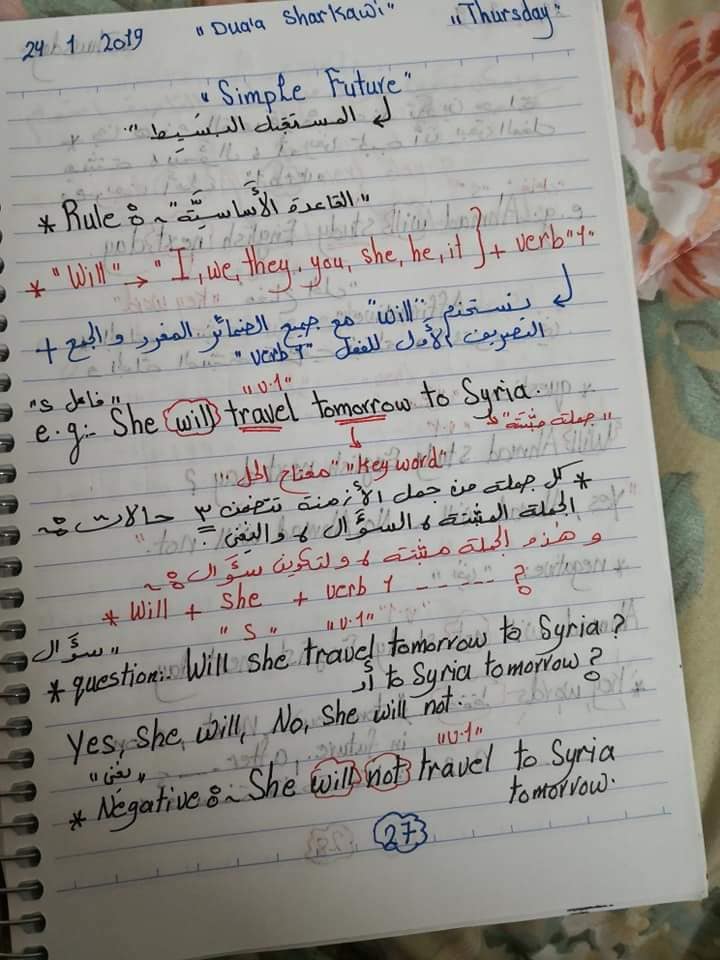 24 1 2019 "Dua'a Sharkawi" "Thursday"
"Simple Future"
المستقبل البسيط"
* Rule :~ "القاعدة الأَساسيَّة"
* "Will" → "I, we, they, you, she, he, it } + verb "1"
نستخدم "will" مع جميع الضمائر المفرد والجمع +
التصريف الأول للفعل "verb 1"
"فاعل s" "v.1"
e.g:- She will travel tomorrow to Syria.
"جملة مثبتة"
"Key word" "مفتاح الحل"
* كل جملة من جمل الأزمنة تتضمن ٣ حالات :~
الجملة المثبتة، السؤال، والنفي :
وهذه الجملة مثبتة، ولتكوين سؤَال :~
* Will + she + verb 1 ------ ?
"s" "v.1"
"سؤَال"
* question:- Will she travel tomorrow to Syria?
أو to Syria tomorrow?
Yes, she will, No, she will not.
"نفي" "v.1"
* Negative :~ She will not travel to Syria
tomorrow.
27